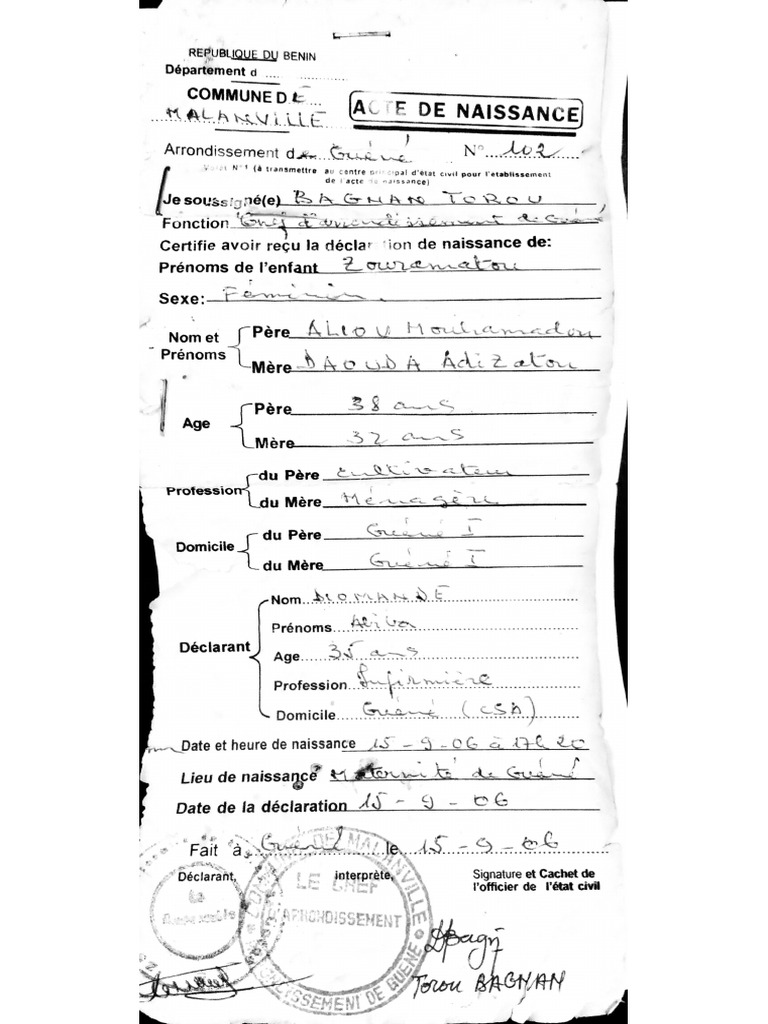 REPUBLIQUE DU BENIN
Département d
COMMUNE DE
MALANVILLE
ACTE DE NAISSANCE
Arrondissement de Guéné N° 102
Volet N°1 (à transmettre au centre principal d'état civil pour l'établissement
de l'acte de naissance)
Je soussigné(e) BAGNAN TOROU
Fonction Chef d'arrondissement de Guéné
Certifie avoir reçu la déclaration de naissance de:
Prénoms de l'enfant Zouramatou
Sexe: Féminin.
Nom et Prénoms
Père ALIOU Mouhamadou
Mère DAOUDA Adizatou
Age
Père 38 ans
Mère 32 ans
Profession
du Père Cultivateur
du Mère Ménagère
Domicile
du Père Guéné I
du Mère Guéné I
Déclarant
Nom DIOMANDE
Prénoms
Age 35 ans
Profession Infirmière
Domicile Guéné (CSA)
Date et heure de naissance 15-9-06 à 17h 20
Lieu de naissance Maternité de Guéné
Date de la déclaration 15-9-06
Fait à Guéné le 15-9-06
Déclarant, interprète, Signature et Cachet de
l'officier de l'état civil
COMMUNE DE MALANVILLE
LE CHEF
D'ARRONDISSEMENT
ARRONDISSEMENT DE GUENE
Torou BAGNAN